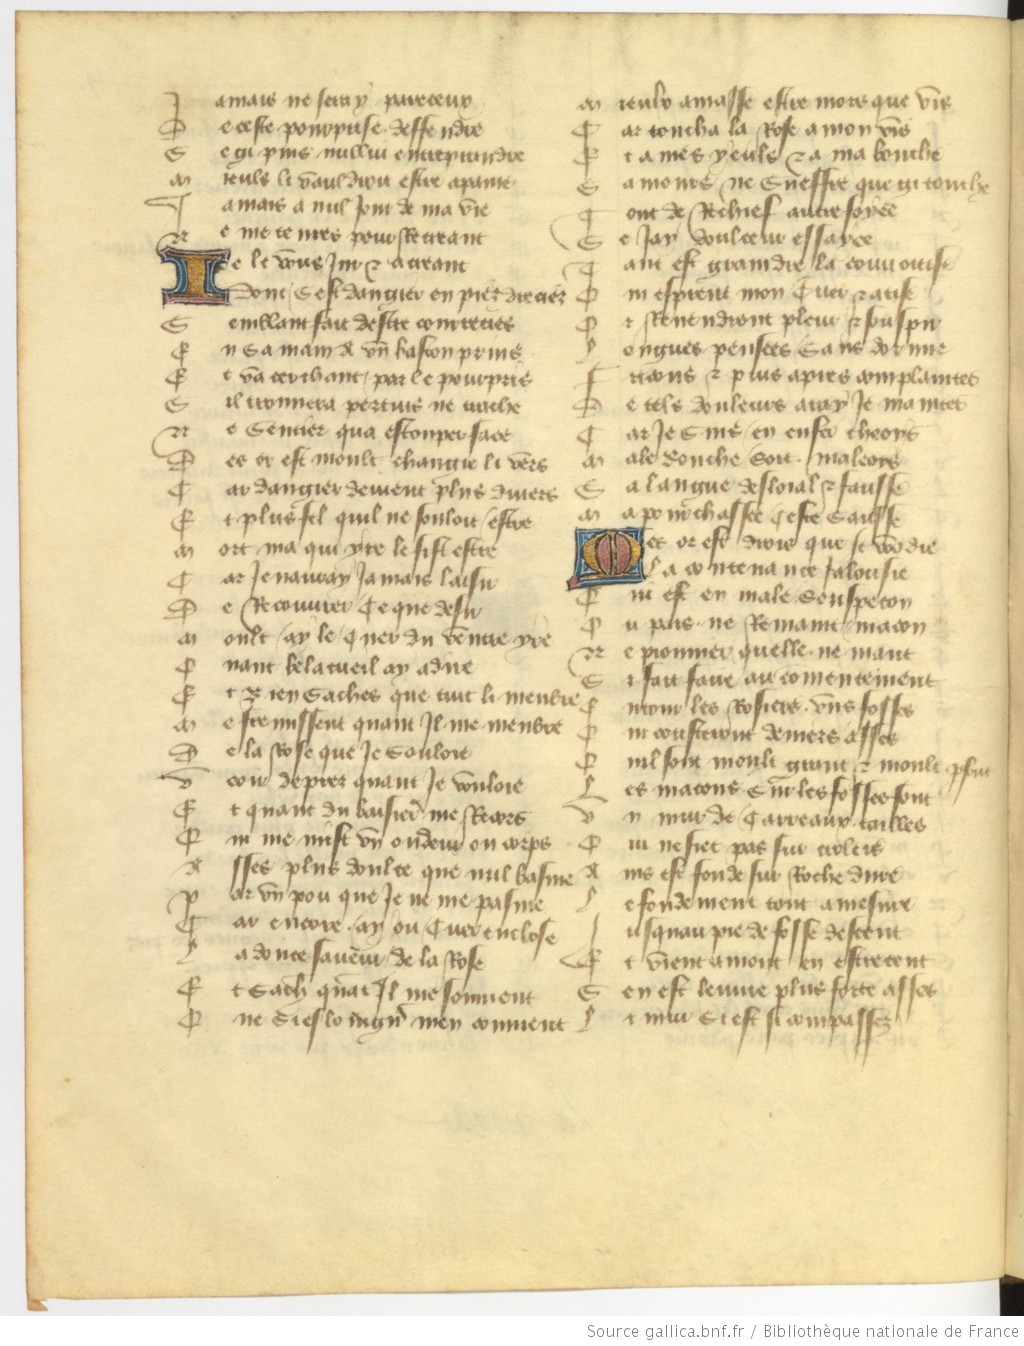 J amais ne seray pareceux
D e ceste pourprise deffendre
S e gi puis nullui entreprandre
M ieulx li vauldroit estre a pavie
J amais a nul jour de ma vie
N e me tenres pour Recreant
J e le vous jur & acreant
Dont sest dangier en piez drecies
S emblant fait destre courrecies
E n sa main a vn baston prins
E t va cerchant par le pourpris
S il trouvera pertuis ne trache
N e Sentier qua estouper face
D es or est moult changie li vers
C ar dangier devient plus divers
E t plus fel quil ne souloit estre
M ort ma qui yre le fist estre
C ar Je nauray Jamais laisir
D e Recouvrer Ce que desir
M oult ay le Cuer du ventre yre
Q uant belacueil ay adire
E t Rien Saches que tuit li menbre
M e fremissent quant Il me menbre
D e la Rose que Je Souloie
V eoir de pres quant Je vouloie
E t quant du baisier me Recors
Q ui me mist vn oudeur ou corps
A sses plus doulce que nul basme
P ar vn pou que Je ne me pasme
C ar encore ay ou Cuer enclose
L a doulce saveur de la Rose
E t Sach quant Il me souvient
Q ue Si esloingnier men convient
M ieulx amasse estre mors que vis
C ar toucha la Rose a mon vis
E t a mes yeulx & a ma bouche
S amours ne Sueffre que gi touche
T out de Rechief autre foyee
S e Jay doulceur essayee
T ant est graindre la couvoitise
Q ui esprent mon Cuer & atise
O r Revendront pleur & souspir
L ongues pensees Sans dormir
F ricons & plus apres complaintes
D e tels douleurs auray Je maintes
C ar Je Suis en enfer cheois
M ale bouche Soit maleois
S a langue desloial & fausse
M a pourchassee Ceste Sausse
Mes or est drois que Je vo die
La contenance Jalousie
Q ui est en male Souspecon
O u pais ne Remaint macon
N e pionnier quelle ne mant
S i fait faire au comencement
E ntour les Rosiers vns fosses
Q ui cousteront deniers asses
Q uil sont moult grant & moult pfont
L es macons Sur les fosses font
V n mur de Carreaux tailles
Q ui ne siet pas sur croleis
A ins est fonde sur Roche dure
L e fondement tout a mesure
J usquau pie de fosse descent
E t vient amont en estrecent
S en est leuvre plus forte asses
L i mur Si est si compassez
Source gallica.bnf.fr / Bibliothèque nationale de France